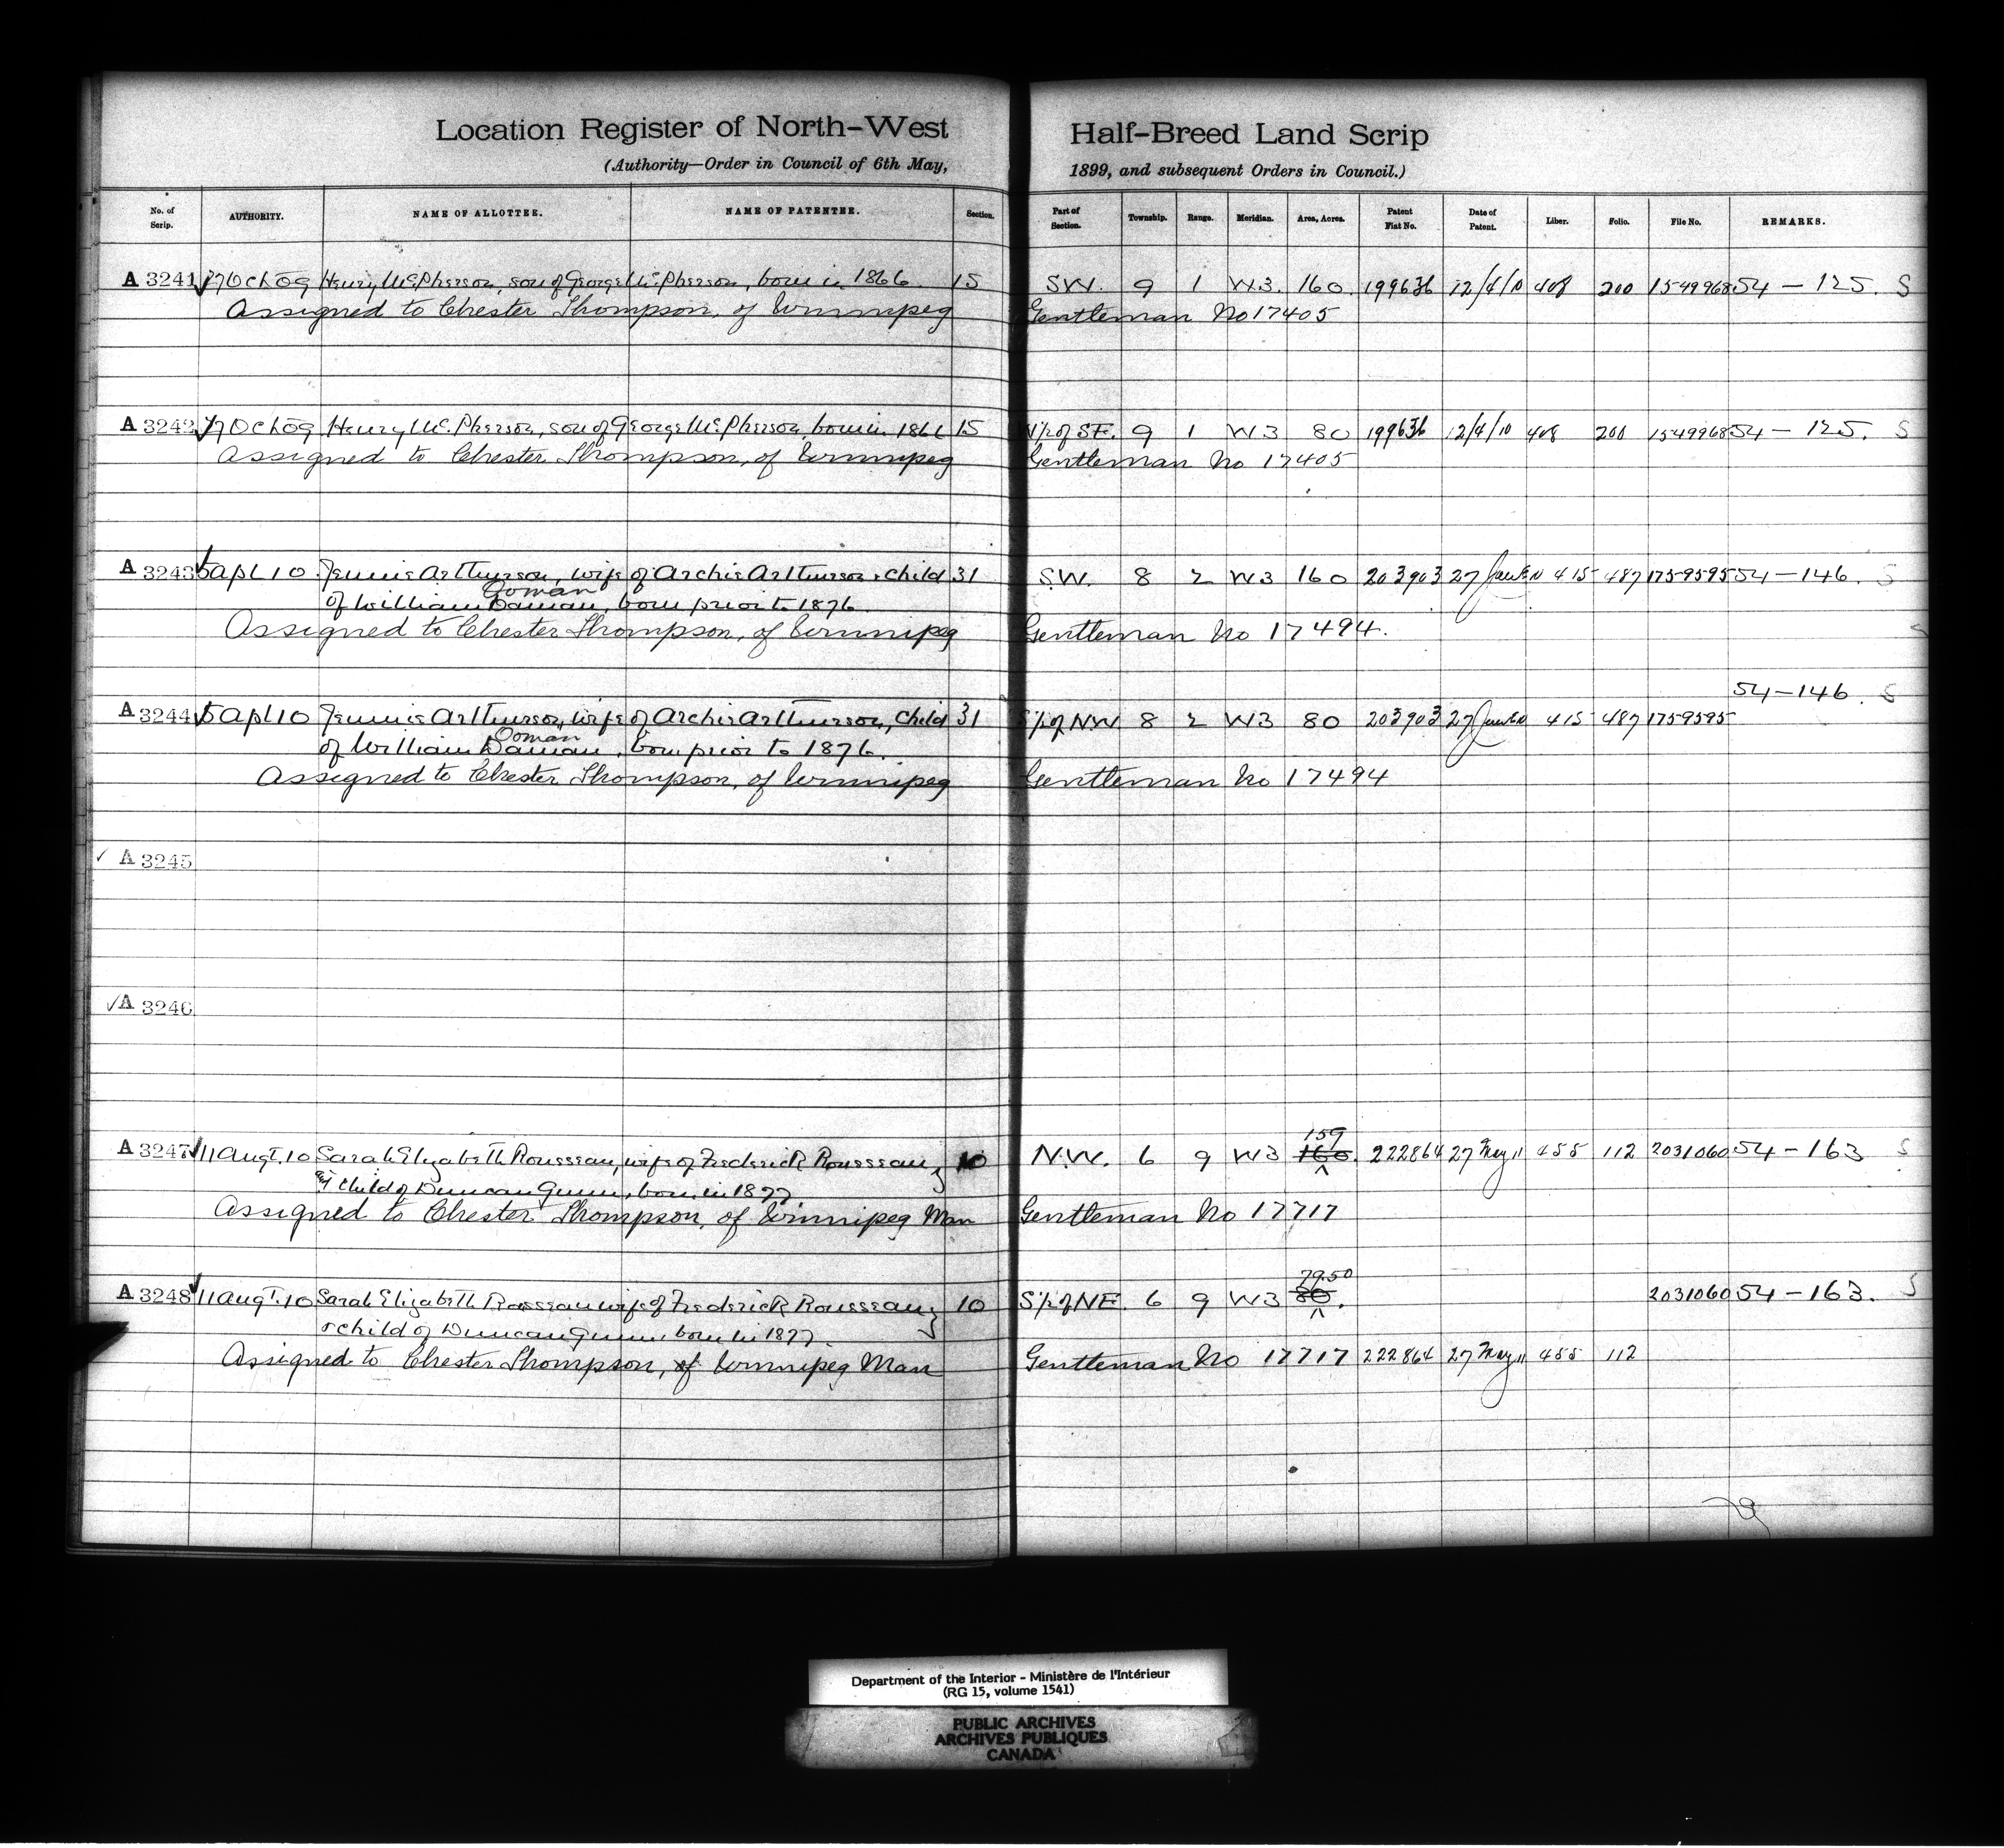 Location Register of North-West Half-Breed Land Scrip
(Authority—Order in Council of 6th May, 1899, and subsequent Orders in Council.)
No. of Scrip. AUTHORITY. NAME OF ALLOTTEE. NAME OF PATENTEE. Section. Part of Section. Township. Range. Meridian. Area, Acres. Patent Fiat No. Date of Patent. Liber. Folio. File No. REMARKS.
A 3241 Oct 09 Henry McPherson, son of George McPherson, born in 1866 15 SW. 9 1 W3. 160. 199636 12/4/10 408 200 1549968 54 - 125. S
Assigned to Chester Thompson, of Winnipeg Gentleman No 17405
A 3242 Oct 09 Henry McPherson, son of George McPherson, born in 1866 15 N½ of SE. 9 1 W3 80 199636 12/4/10 408 200 1549968 54 - 125. S
Assigned to Chester Thompson, of Winnipeg Gentleman No 17405
A 3243 5 Apl 10 Jennie Arthurson, wife of Archie Arthurson & child 31 SW. 8 2 W3 160 203903 27 June 10 415 487 1759595 54 - 146. S
Doman
of William Daman, born prior to 1876.
Assigned to Chester Thompson, of Winnipeg Gentleman No 17494.
54 - 146. S
A 3244 5 Apl 10 Jennie Arthurson, wife of Archie Arthurson, child 31 S½ of NW 8 2 W3 80 203903 27 June 10 415 487 1759595
Doman
of William Daman, born prior to 1876.
Assigned to Chester Thompson, of Winnipeg Gentleman No 17494
✓ A 3245
✓ A 3246
159
A 3247 11 Augt. 10 Sarah Elizabeth Rousseau, wife of Frederick Rousseau 10 N.W. 6 9 W3 160. 222864 27 May 11 455 112 2031060 54 - 163 S
child of Duncan Gunn, born in 1877.
Assigned to Chester Thompson, of Winnipeg Man Gentleman No 17717
79.50
A 3248 11 Augt. 10 Sarah Elizabeth Rousseau wife of Frederick Rousseau 10 S½ of NE. 6 9 W3 80. 2031060 54 - 163. S
& child of Duncan Gunn, born in 1877.
Assigned to Chester Thompson, of Winnipeg Man Gentleman No 17717 222864 27 May 11 455 112
Department of the Interior - Ministère de l'Intérieur
(RG 15, volume 1541)
PUBLIC ARCHIVES
ARCHIVES PUBLIQUES
CANADA